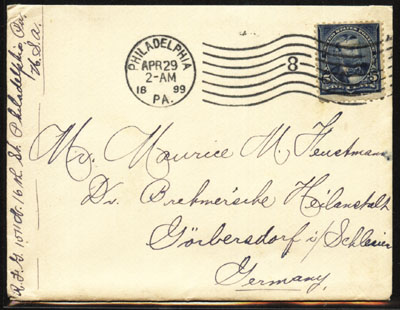 R.F.G. 1011 N. 16th St. Philadelphia, Pa.
U.S.a.
PHILADELPHIA
APR 29
2-AM
18 99
PA.
8
Mr. Maurice M. Feustmann
Dr. Brehmer'sche Heilanstalt
Görbersdorf i/Schlesien
Germany